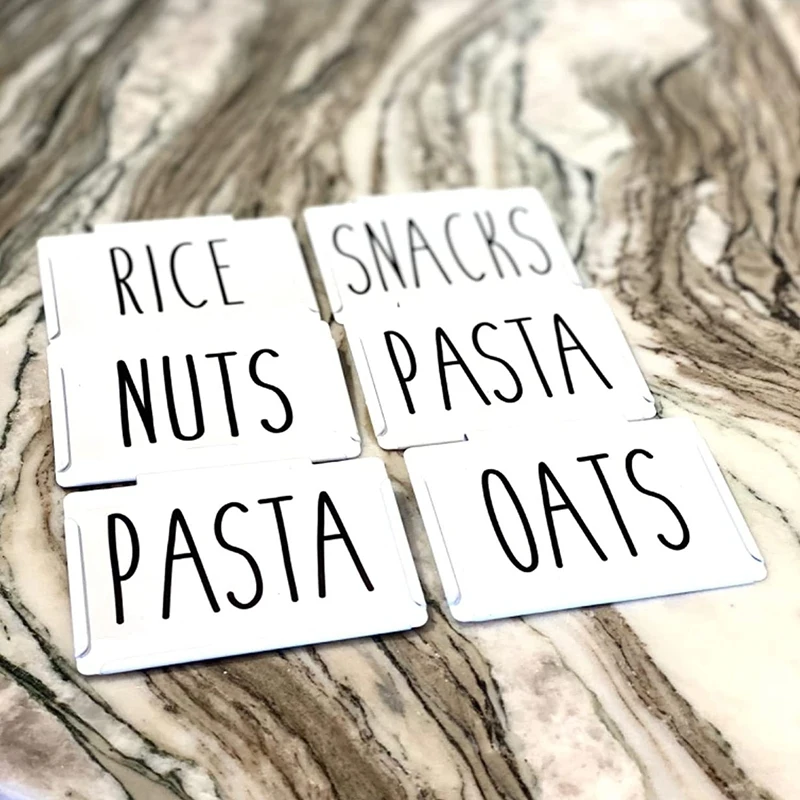 RICE
SNACKS
NUTS
PASTA
PASTA
OATS